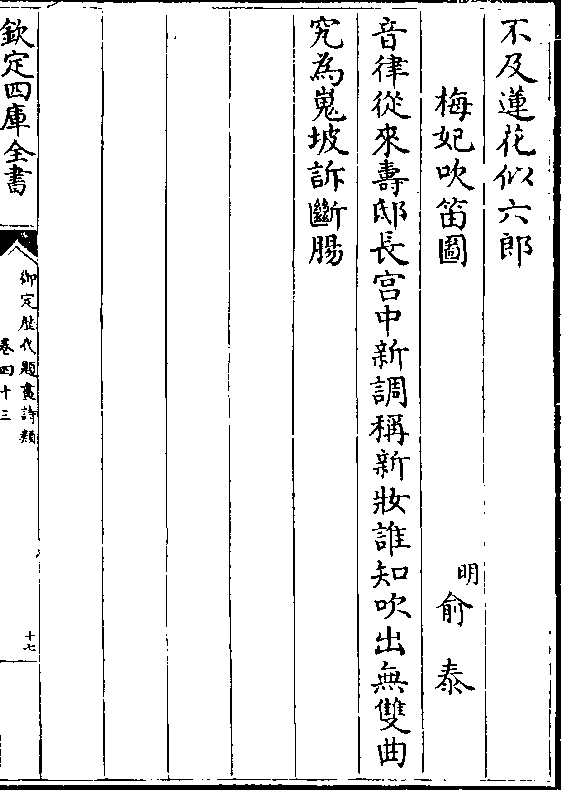 不及蓮花似六郎
梅妃吹笛圖
明俞泰
音律從來壽邸長宫中新調稱新妝誰知吹出無雙曲
究為嵬坡訴斷腸
欽定四庫全書
御定歴代題畫詩類
卷四十三
十七